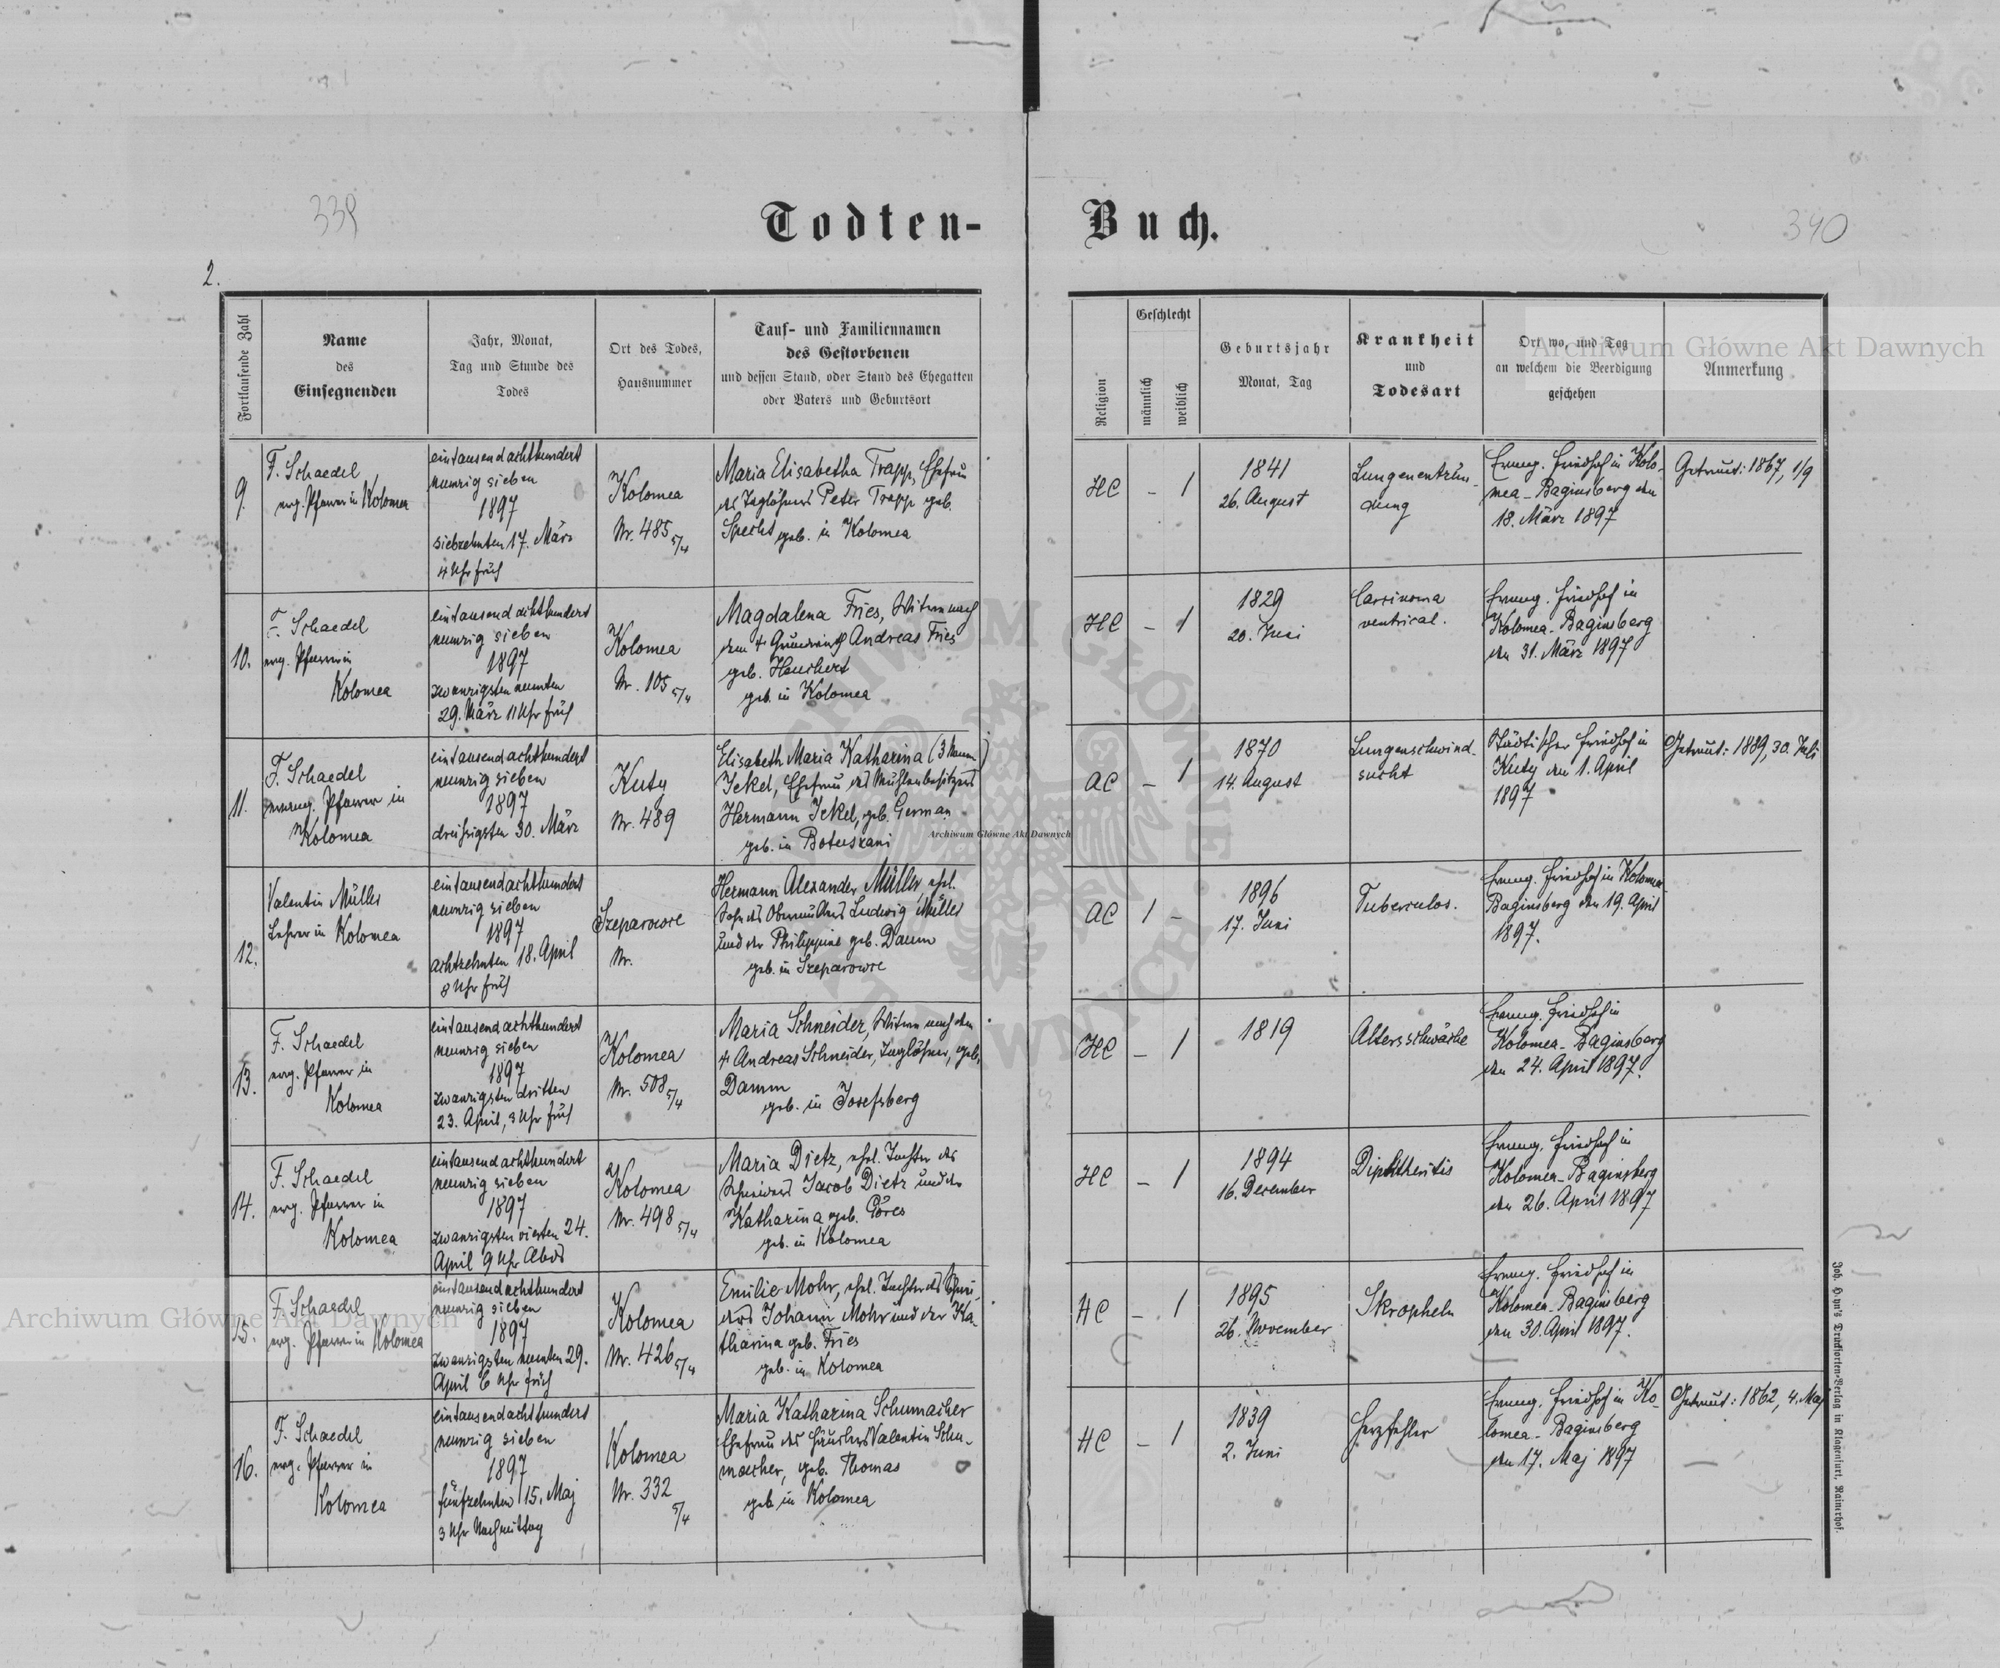 339
Todten-
Buch.
340
2.
Fortlaufende Zahl
Name
des
Einsegnenden
Jahr, Monat,
Tag und Stunde des
Todes
Ort des Todes,
Hausnummer
Tauf- und Familiennamen
des Gestorbenen
und dessen Stand, oder Stand des Ehegatten
oder Vaters und Geburtsort
Religion
Geschlecht
männlich
weiblich
Geburtsjahr
Monat, Tag
Krankheit
und
Todesart
Ort wo, und Tag
an welchem die Beerdigung
geschehen
Anmerkung
9.
F. Schaedel
evg. Pfarrer in Kolomea
eintausendachthundert
neunzig sieben
1897
siebzehnten 17. März
4 Uhr früh
Kolomea
Nr. 485 5/4
Maria Elisabetha Trapp, Ehefrau
des Taglöhners Peter Trapp geb.
Specht geb. in Kolomea
HC
–
1
1841
26. August
Lungenentzün-
dung
Evang. Friedhof in Kolo-
mea-Baginsberg den
18. März 1897
Getraut: 1867, 1/9
10.
F. Schaedel
evg. Pfarrer in
Kolomea
eintausend achthundert
neunzig sieben
1897
zwanzigsten neunten
29. März 11 Uhr früh
Kolomea
Nr. 105 5/4
Magdalena Fries, Witwe nach
dem + Grundwirth Andreas Fries
geb. Hauchert
geb. in Kolomea
HC
–
1
1829
20. Juni
Carcinoma
ventrical.
Evang. Friedhof in
Kolomea-Baginsberg
den 31. März 1897
11.
F. Schaedel
evang. Pfarrer in
Kolomea
eintausendachthundert
neunzig sieben
1897
dreißigsten 30. März
Kuty
Nr. 489
Elisabeth Maria Katharina (3 Namen)
Jekel, Ehefrau des Mühlenbesitzers
Hermann Jekel, geb. German
geb. in Botuszani
AC
–
1
1870
14. August
Lungenschwind-
sucht
Städtischer Friedhof in
Kuty den 1. April
1897
Getraut: 1889, 30. Juli
12.
Valentin Müller
Lehrer in Kolomea
eintausendachthundert
neunzig sieben
1897
achtzehnten 18. April
8 Uhr früh
Szeparowce
Nr.
Hermann Alexander Müller, ehel.
Sohn des Ludwig Müller
und der Philippine geb. Daum
geb. in Szeparowce
AC
1
–
1896
17. Juni
Tuberculos.
Evang. Friedhof in Kolomea-
Baginsberg den 19. April
1897.
13.
F. Schaedel
evg. Pfarrer in
Kolomea
eintausendachthundert
neunzig sieben
1897
zwanzigsten dritten
23. April, 3 Uhr früh
Kolomea
Nr. 508 5/4
Maria Schneider, Witwe nach dem
+ Andreas Schneider, Taglöhner, geb.
Damm
geb. in Josefsberg
HC
–
1
1819
Altersschwäche
Evang. Friedhof in
Kolomea-Baginsberg
den 24. April 1897.
14.
F. Schaedel
evg. Pfarrer in
Kolomea
eintausendachthundert
neunzig sieben
1897
zwanzigsten vierten 24.
April 9 Uhr Abds
Kolomea
Nr. 498 5/4
Maria Dietz, ehel. Tochter des
Schneiders Jacob Dietz und der
Katharina geb. Göres
geb. in Kolomea
HC
–
1
1894
16. December
Diphtheritis
Evang. Friedhof in
Kolomea-Baginsberg
den 26. April 1897
15.
F. Schaedel
evg. Pfarrer in Kolomea
eintausendachthundert
neunzig sieben
1897
zwanzigsten neunten 29.
April 6 Uhr früh
Kolomea
Nr. 426 5/4
Emilie Mohr, ehel. Tochter des Schnei-
ders Johann Mohr und der Ka-
tharina geb. Fries
geb. in Kolomea
HC
–
1
1895
26. November
Skropheln
Evang. Friedhof in
Kolomea-Baginsberg
den 30. April 1897.
16.
F. Schaedel
evg. Pfarrer in
Kolomea
eintausendachthundert
neunzig sieben
1897
fünfzehnten 15. Maj
3 Uhr Nachmittag
Kolomea
Nr. 332
5/4
Maria Katharina Schumacher
Ehefrau des Häuslers Valentin Schu-
macher, geb. Thomas
geb. in Kolomea
HC
–
1
1839
2. Juni
Herzfehler
Evang. Friedhof in Ko-
lomea-Baginsberg
den 17. Maj 1897
Getraut: 1862, 4. Maj
Joh. Heyn's Drucksorten-Verlag in Klagenfurt, Rainerhof.
Archiwum Główne Akt Dawnych
Archiwum Główne Akt Dawnych
Archiwum Główne Akt Dawnych
ARCHIWUM GŁÓWNE AKT DAWNYCH